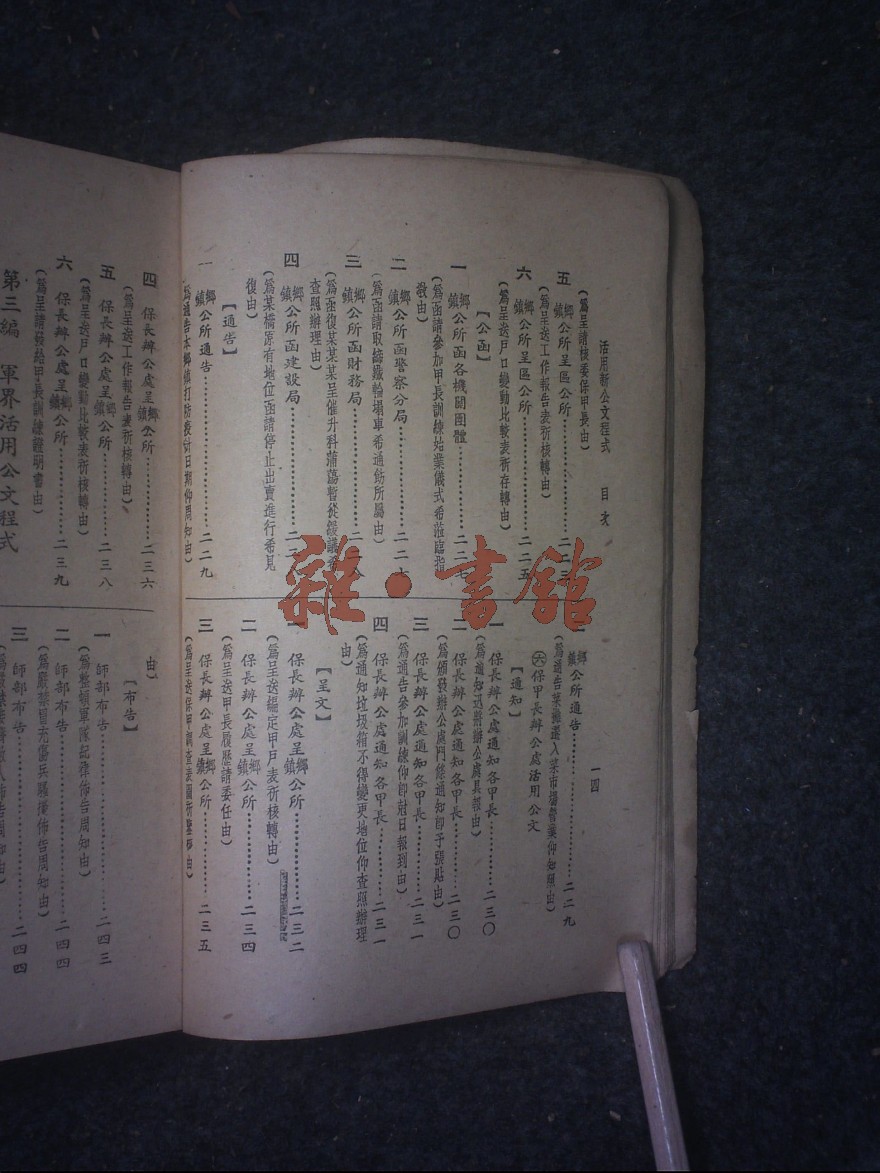 活用新公文程式 目次 一四
(為呈請核委保甲長由)
五 鄉鎮公所呈區公所……二二三
(為呈送工作報告表祈核轉由)
六 鄉鎮公所呈區公所……二二五
(為呈送戶口變動比較表祈存轉由)
【公函】
一 鄉鎮公所函各機關團體……二二七
(為函請參加甲長訓練始業儀式希蒞臨指
教由)
二 鄉鎮公所函警察分局……二二七
(為函請取締鐵輪塌車希通飭所屬由)
三 鄉鎮公所函財務局……二二八
(為函復某某某呈催升科蒲蕩暫從緩議希
查照辦理由)
四 鄉鎮公所函建設局……二二八
(為某橋原有地位函請停止出賣進行希見
復由)
【通告】
一 鄉鎮公所通告……二二九
(為通告本鄉鎮打防疫針日期仰周知由)
二 鄉鎮公所通告……二二九
(為通告菜攤遷入菜市場營業仰知照由)
㈥保甲長辦公處活用公文
【通知】
一 保長辦公處通知各甲長……二三〇
二 保長辦公處通知各甲長……二三〇
(為頒發辦公處門條通知卽予張貼由)
三 保長辦公處通知各甲長……二三一
(為通告參加訓練仰卽尅日報到由)
四 保長辦公處通知各甲長……二三一
(為通知垃圾箱不得變更地位仰查照辦理
由)
【呈文】
一 保長辦公處呈鄉鎮公所……二三二
(為呈送編定甲戶表祈核轉由)
二 保長辦公處呈鄉鎮公所……二三四
(為呈送甲長履歷請委任由)
三 保長辦公處呈鄉鎮公所……二三五
(為呈送保甲調查表圖祈
四 保長辦公處呈鄉鎮公所……二三六
(為呈送工作報告表祈核轉由)
五 保長辦公處呈鄉鎮公所……二三八
(為呈送戶口變動比較表祈核轉由)
六 保長辦公處呈鄉鎮公所……二三九
(為呈請發給甲長訓練證明書由)
第三編 軍界活用公文程式
由)
【布告】
一 師部布告……二四三
(為整頓軍隊紀律佈告周知由)
二 師部布告……二四四
(為嚴禁冒充傷兵騷擾佈告周知由)
三 師部布告……二四四
雜·書館